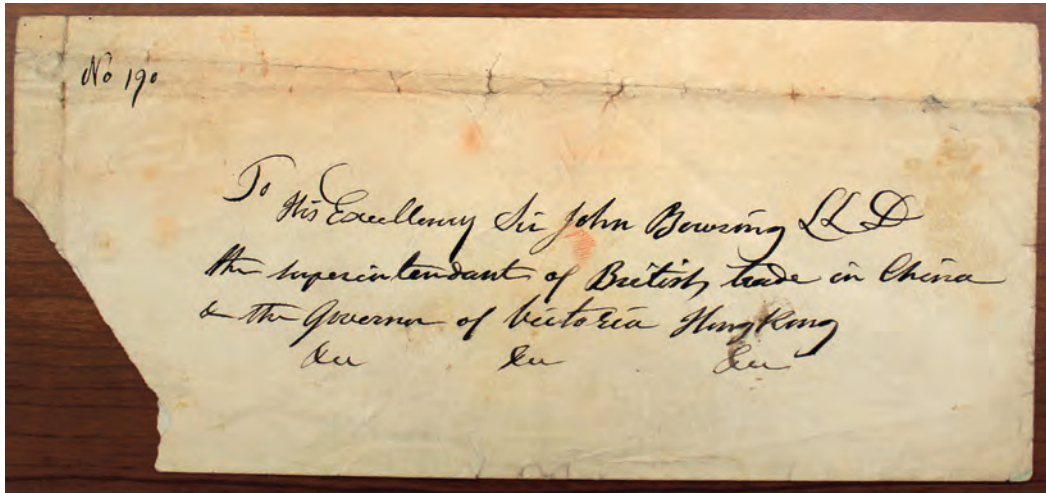 No 190
To
His Excellency Sir John Bowring LLD
the superintendant of British trade in China
& the Governor of Victoria HongKong
&cc &cc &cc